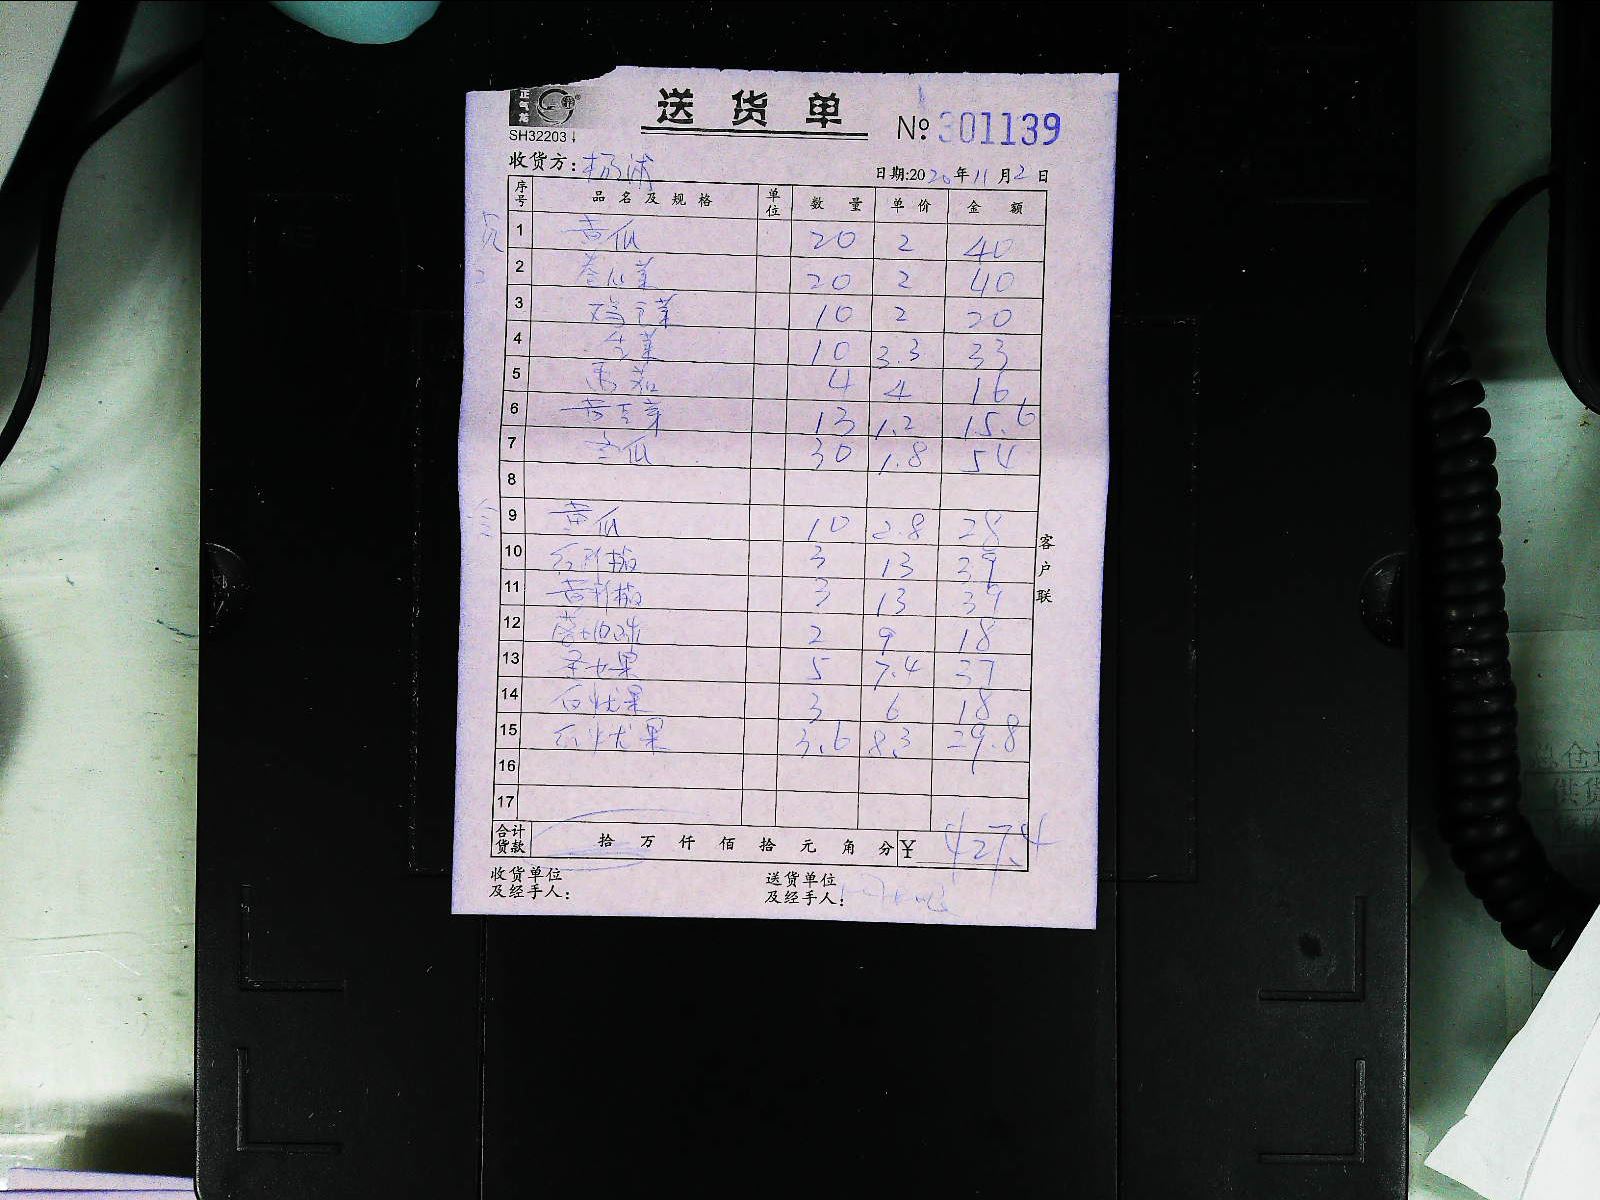 正气龙
送货单
SH32203
№ 301139
收货方: 杨浦
日期:2020年11月2日
序号 品名及规格 单位 数量 单价 金额
1 黄瓜 20 2 40
2 20 2 40
3 鸡毛菜 10 2 20
4 生菜 10 3.3 33
5 番茄 4 4 16
6 黄豆芽 13 1.2 15.6
7 冬瓜 30 1.8 54
8
9 黄瓜 10 2.8 28
10 红彩椒 3 13 39
11 黄彩椒 3 13 39
12 2 9 18
13 圣女果 5 7.4 37
14 3 6 18
15 3.6 8.3 29.8
16
17
客户联
合计货款 拾 万 仟 佰 拾 元 角 分 ¥ 427.4
收货单位及经手人:
送货单位及经手人: